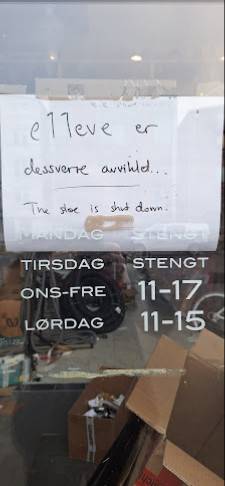 elleve er
dessverre avviklet...
The store is shut down.
MANDAG STENGT
TIRSDAG STENGT
ONS-FRE 11-17
LØRDAG 11-15